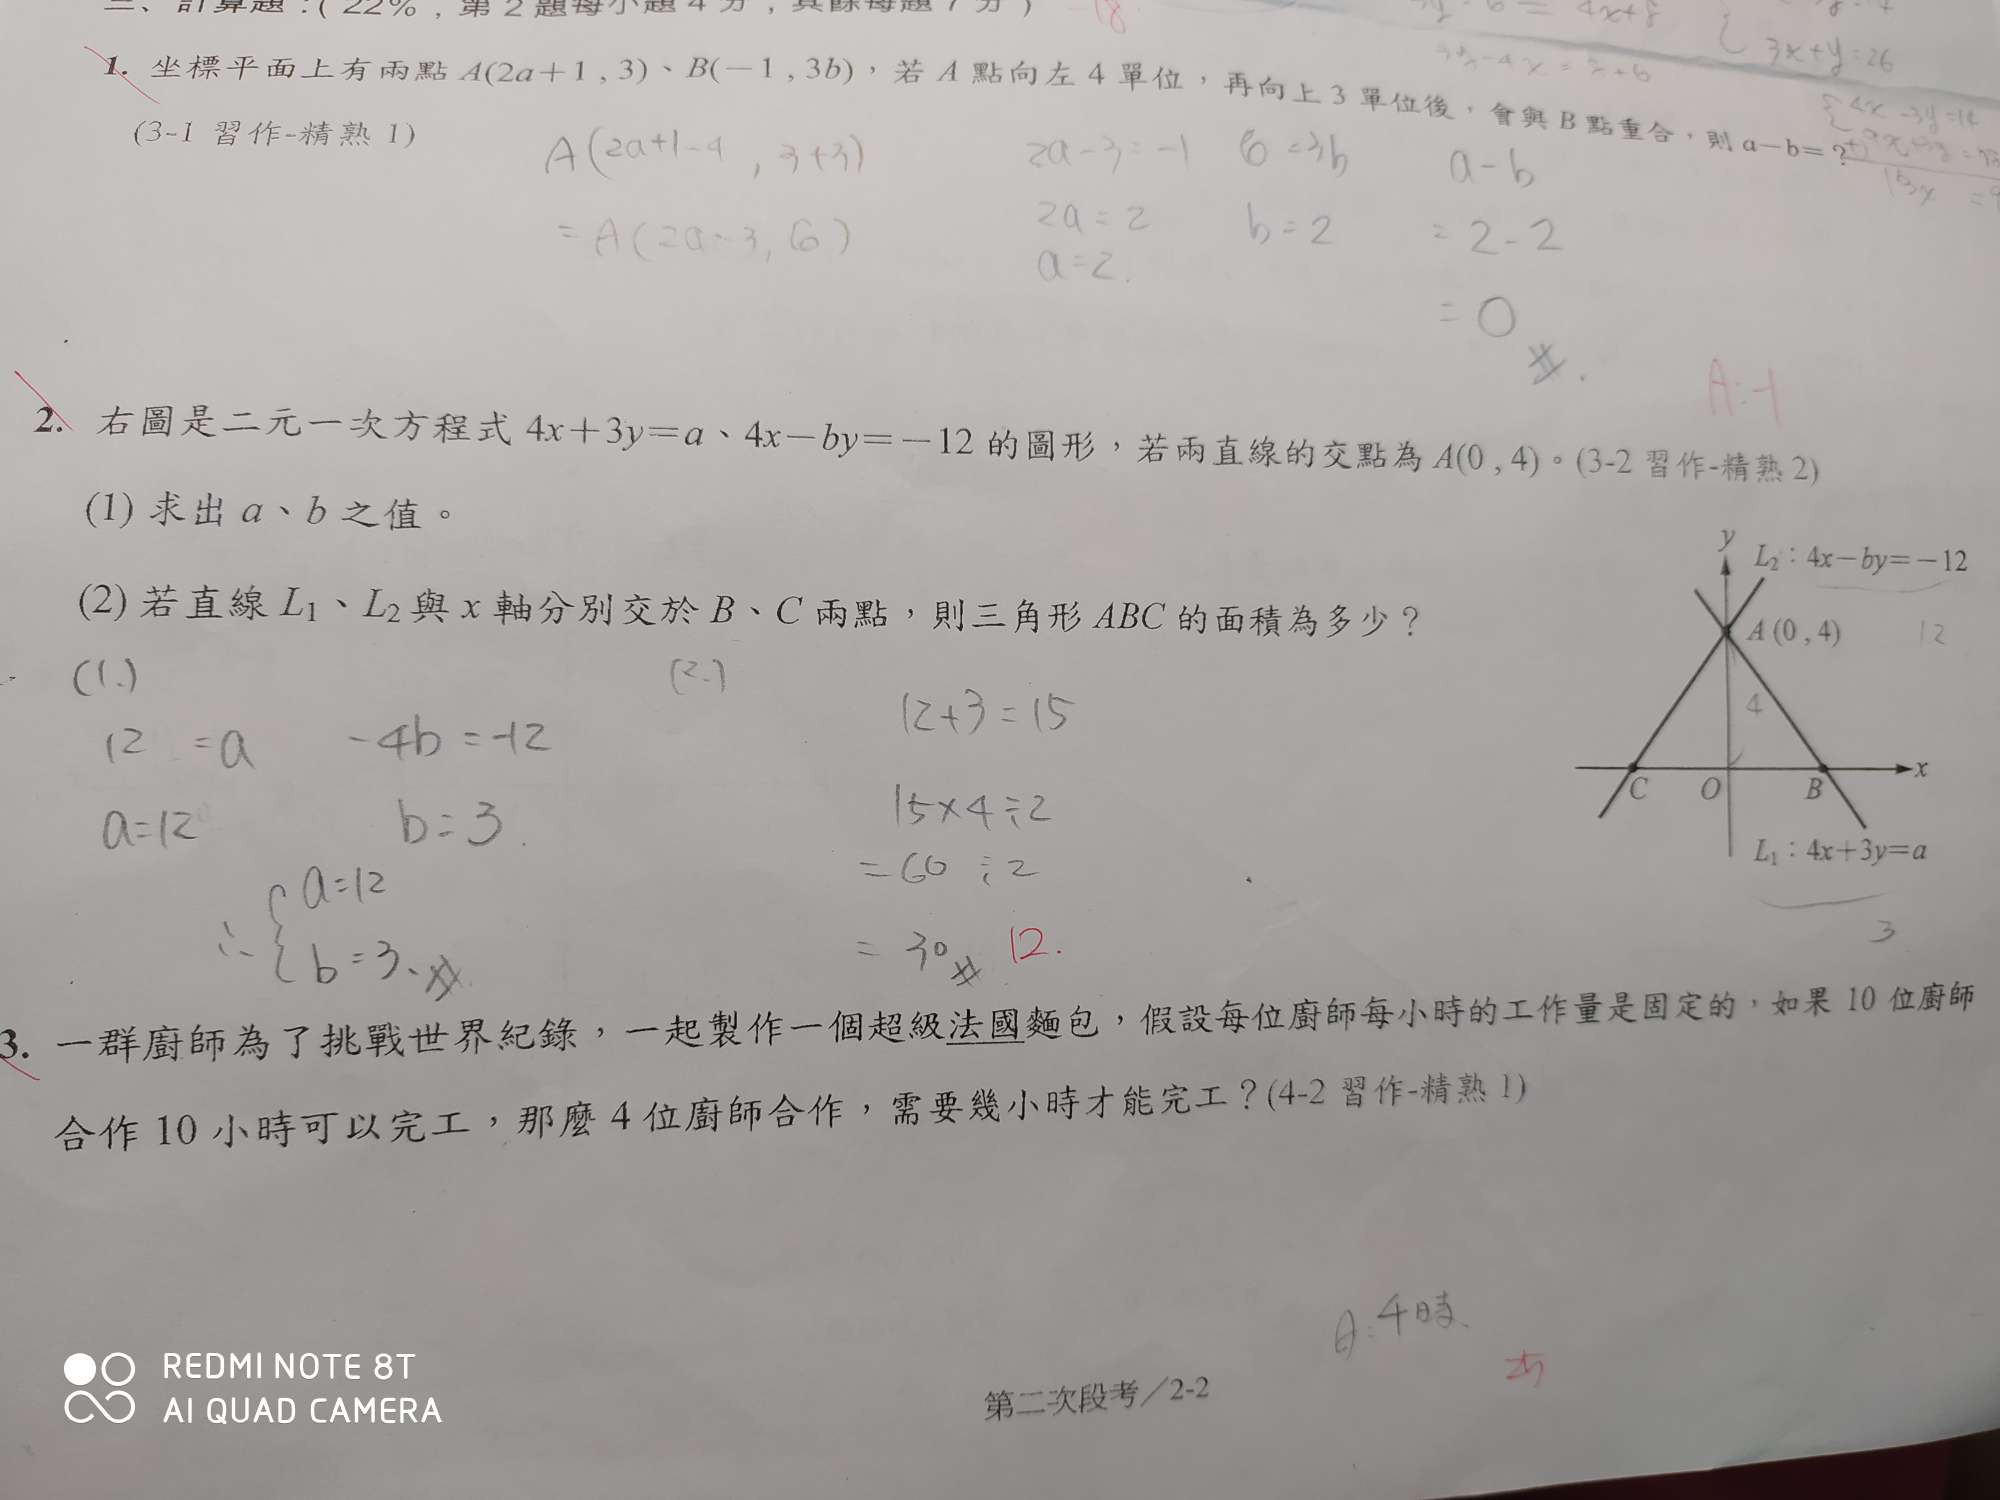 三、計算題:(22%,第2題每小題4分,其餘每題7分)
3x+y=26
1. 坐標平面上有兩點A(2a+1,3)、B(-1,3b),若A點向左4單位,再向上3單位後,會與B點重合,則a-b=?
(3-1 習作-精熟1)
A(2a+1-4,3+3) 2a-3=-1 6=3b a-b
=A(2a-3,6) 2a=2 b=2 =2-2
a=2.
=0
A:-1
2. 右圖是二元一次方程式4x+3y=a、4x-by=-12的圖形,若兩直線的交點為A(0,4)。(3-2 習作-精熟2)
(1) 求出a、b之值。
(2) 若直線L₁、L₂與x軸分別交於B、C兩點,則三角形ABC的面積為多少?
y
L₂:4x-by=-12
A(0,4)
12
4
C O B x
L₁:4x+3y=a
3
(1.)
12 =a -4b=-12
a=12 b=3.
∴{a=12
b=3.
(2.)
12+3=15
15×4÷2
=60÷2
=30 12.
3. 一群廚師為了挑戰世界紀錄,一起製作一個超級法國麵包,假設每位廚師每小時的工作量是固定的,如果10位廚師
合作10小時可以完工,那麼4位廚師合作,需要幾小時才能完工?(4-2 習作-精熟1)
A:4時.
第二次段考/2-2
REDMI NOTE 8T
AI QUAD CAMERA